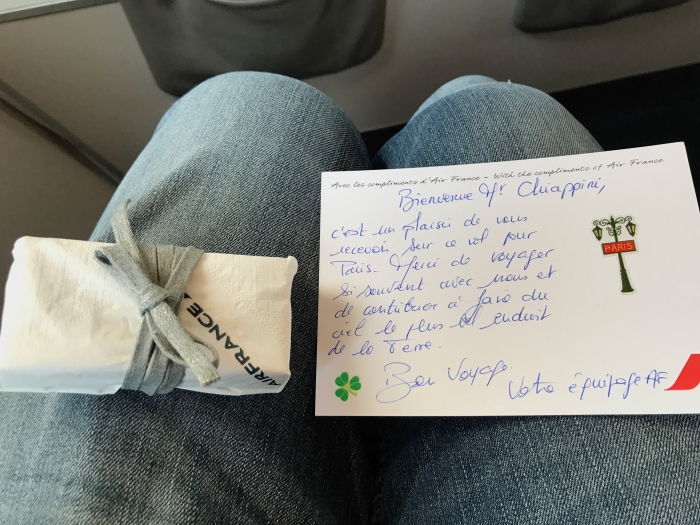 Avec les compliments d'Air France - With the compliments of Air France
Bienvenue Mr Chiappini,
c'est un plaisir de vous
recevoir sur ce vol pour
Paris. Merci de voyager
si souvent avec nous et
de contribuer à faire du
ciel le plus bel endroit
de la Terre.
Bon Voyage.
Votre équipage AF
PARIS
AIRFRANCE